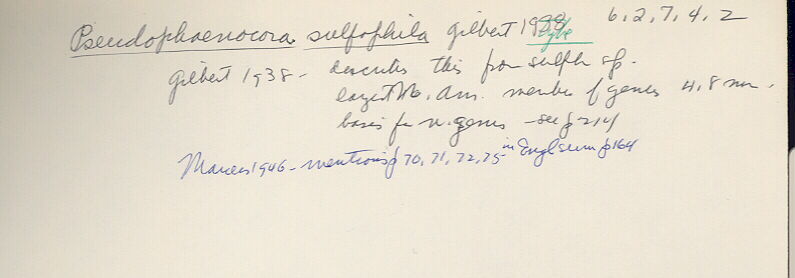 Pseudophaenocora sulfophila Gilbert 1938 6, 2, 7, 4, 2
Type
Gilbert 1938 - describes this from sulfur sp.
largest No. Am. member of genus 4.8 mm.
basis for n. genus - see p 214
Marcus 1946 - mentions p 70, 71, 72, 75 in Engl summ p 164